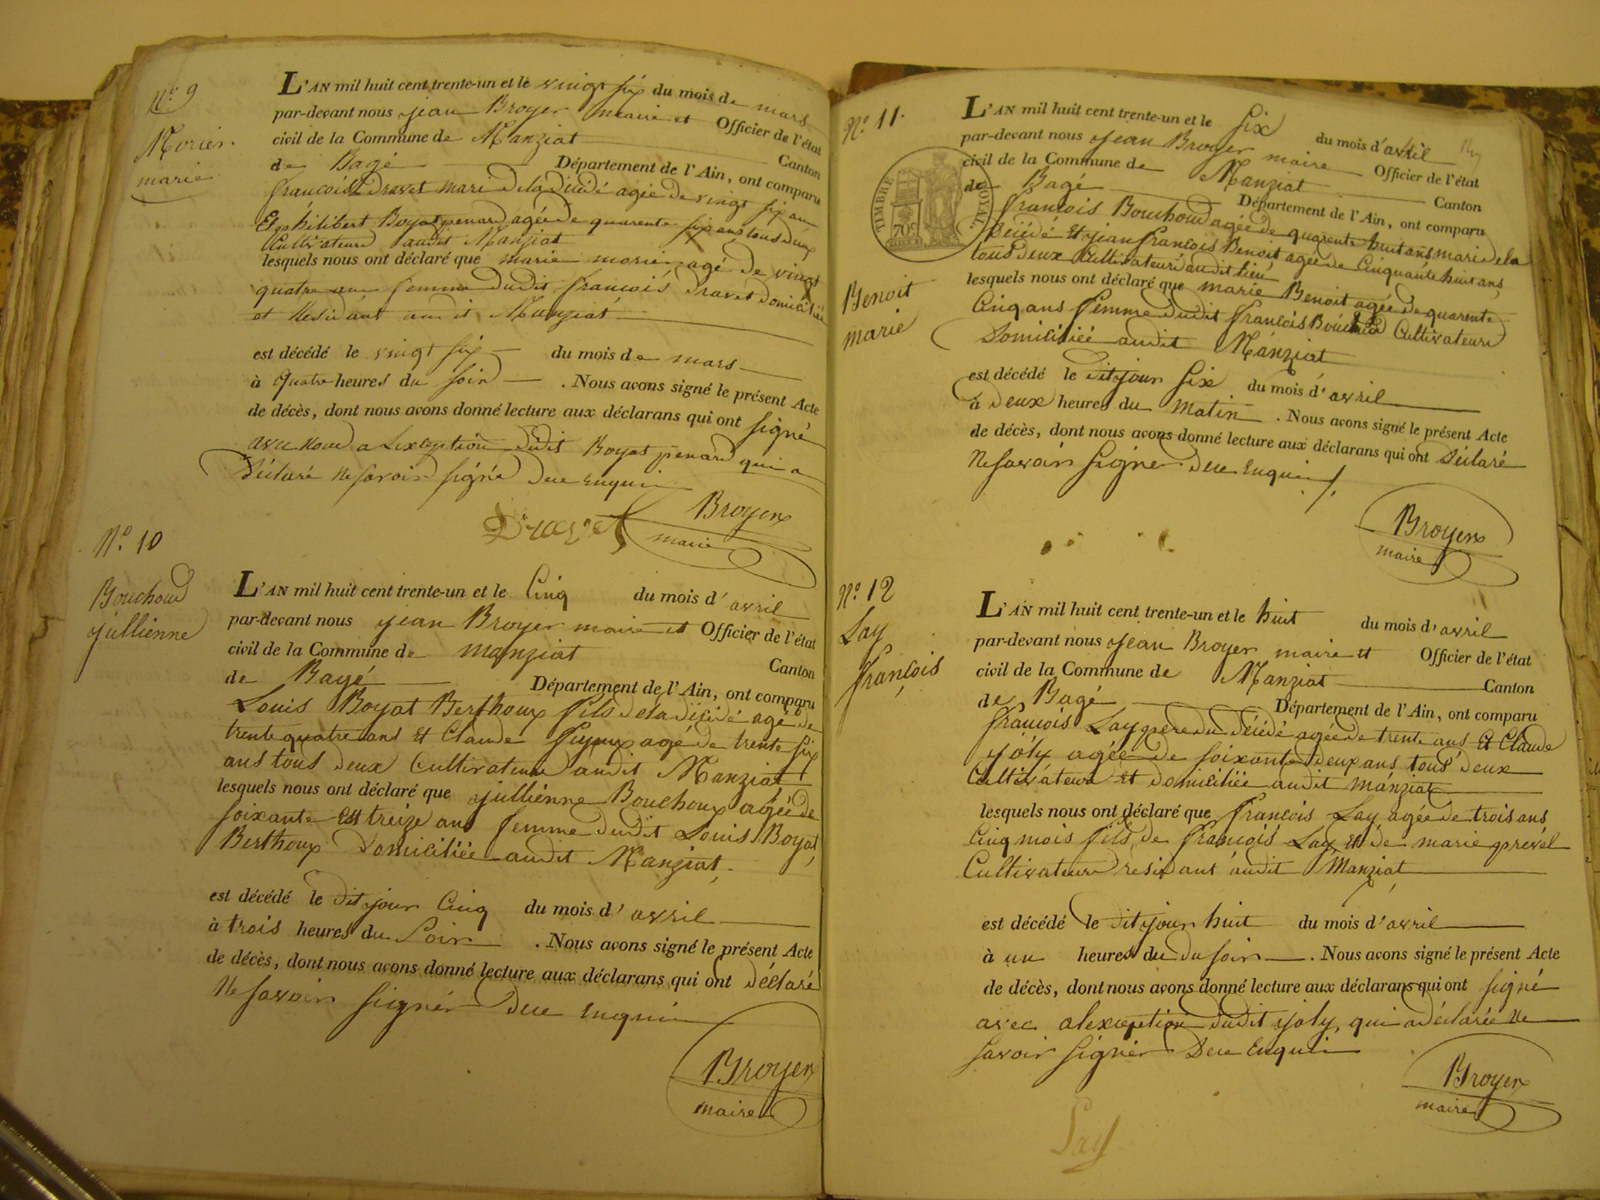 N.º 9
Morier
marie
L'AN mil huit cent trente-un et le vingt six du mois de mars
par-devant nous jean Broyer maire et Officier de l'état
civil de la Commune de Manziat Canton
de Bagé Département de l'Ain, ont comparu
françois dravet mari de la décédé agée de vingt six ans
Et philibert Boyat penard agée de quarente six ans tous deux
Cultivateurs audit Manziat
lesquels nous ont déclaré que marie morier agé de vingt
quatre ans femme dudit françois Dravet Domiciliée
et Residant audit Manziat
est décédé le vingt six du mois de mars
à quatre heures du soir . Nous avons signé le présent Acte
de décès, dont nous avons donné lecture aux déclarans qui ont signé
avec nous a Lexception dudit Boyat penard qui a
Déclaré ne savoir signé Dece Enquis
Dravet
Broyer
maire
N.º 10
Bouchoud
jullienne
L'AN mil huit cent trente-un et le Cinq du mois d'avril
par-devant nous jean Broyer maire et Officier de l'état
civil de la Commune de manziat Canton
de Bagé Département de l'Ain, ont comparu
Louis Boyat Berthoux fils de la décédé agé de
trente quatre ans Et Claude agé de trente six
ans tous deux Cultivateurs audit Manziat
lesquels nous ont déclaré que jullienne Bouchoux agée de
soixante Et treize ans femme dudit Louis Boyat
Berthoux Domiciliée audit Manziat
est décédé le dit jour Cinq du mois d'avril
à trois heures du Soir . Nous avons signé le présent Acte
de décès, dont nous avons donné lecture aux déclarans qui ont déclaré
Ne savoir signer Dece Enquis
Broyer
maire
N.º 11.
TIMBRE ROYAL
70c
Benoit
marie
L'AN mil huit cent trente-un et le Six du mois d'avril
par-devant nous jean Broyer maire Officier de l'état
civil de la Commune de Manziat Canton
de Bagé Département de l'Ain, ont comparu
françois Bouchoud agée de quarente huit ans mari de la
Décédé Et jean françois Benoit agée de Cinquante huit ans
tous Deux Cultivateurs audit lieu
lesquels nous ont déclaré que marie Benoit agée de quarente
Cinq ans femme dudit françois Bouchoud Cultivateurs
Domiciliée audit Manziat
est décédé le dit jour Six du mois d'avril
à Deux heures du Matin . Nous avons signé le présent Acte
de décès, dont nous avons donné lecture aux déclarans qui ont Déclaré
Ne savoir signer Dece Enquis
Broyer
maire
N.º 12
Lay
françois
L'AN mil huit cent trente-un et le huit du mois d'avril
par-devant nous jean Broyer maire et Officier de l'état
civil de la Commune de Manziat Canton
de Bagé Département de l'Ain, ont comparu
françois Lay pere du Décédé agée de trente ans Et Claude
joly agée de soixante deux ans tous deux
Cultivateurs Et domiciliée audit manziat
lesquels nous ont déclaré que françois Lay agée de trois ans
Cinq mois fils de françois Lay Et de marie prevel
Cultivateurs residant audit Manziat
est décédé le dit jour huit du mois d'avril
à un heures du du soir . Nous avons signé le présent Acte
de décès, dont nous avons donné lecture aux déclarans qui ont signé
avec alexception dudit joly, qui a déclarée ne
savoir signer Dece Enquis
Broyer
maire
Lay